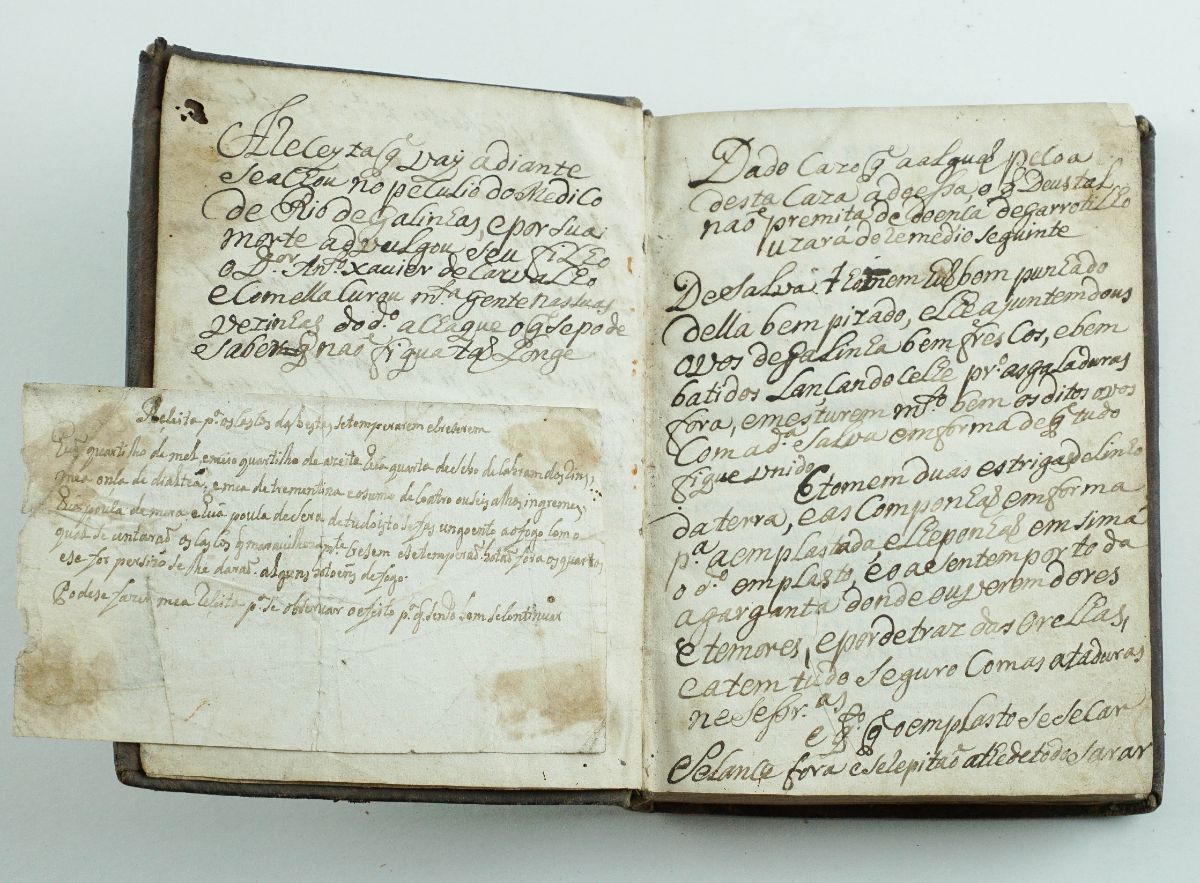 A Receyta q̃ vay adiante
se achou no peculio do Medico
de Rio de galinhas, e por sua
morte a dvulgou seu filho
o D.or Ant.o Xavier de Carvalho
e com ella curou m.ta gente nas suas
vezinhas do d.o achaque o q̃ se pode
saber q̃ naõ fiqua taõ Longe
Receita p.a os cascos das bestas se temperarem e creserem
quartilho de mel, e meio quartilho de azeite huã quarta de sebo de
mea onsa de dialtea, e mea de trementina e o sumo de coatro ou seis alhos,
huã pouca de sera de tudo isto se fas ungoento ao fogo com o
qual se untaraõ os cascos
e se for persizo se lhe daraõ alguns botoens de fogo.
Podese fazer mea Receita p.a se observar o efeito p.a q̃ sendo bom se continuar
Dado Cazo q̃ a algũa peCoa
desta Caza adoessa o q̃ Deus tal
naõ premita de doenca de garrotilho
uzará do remedio seguinte
De Salva tomem hũ bom punhado
della bem pizado, e lhe ajuntem dous
ovos de galinha bem frescos, e bem
batidos Lancandocelhe pr.o as galaduras
fora, e mesturem m.to bem os ditos ovos
Com a d.a Salva em forma de q̃ tudo
fique unido. E tomem duas estrigas de Linho
da terra, e as Componhaõ em forma
p.a a emplastada, e lhe ponhaõ em sima
o d.o emplasto, e o asentem por toda
a garganta donde ouverem dores
e temores, e por detraz das Orelhas,
e atem tudo seguro Com as ataduras
neseSr.as
e q̃ o emplasto se secar
Se lance fora e se repita athe de todo sarar